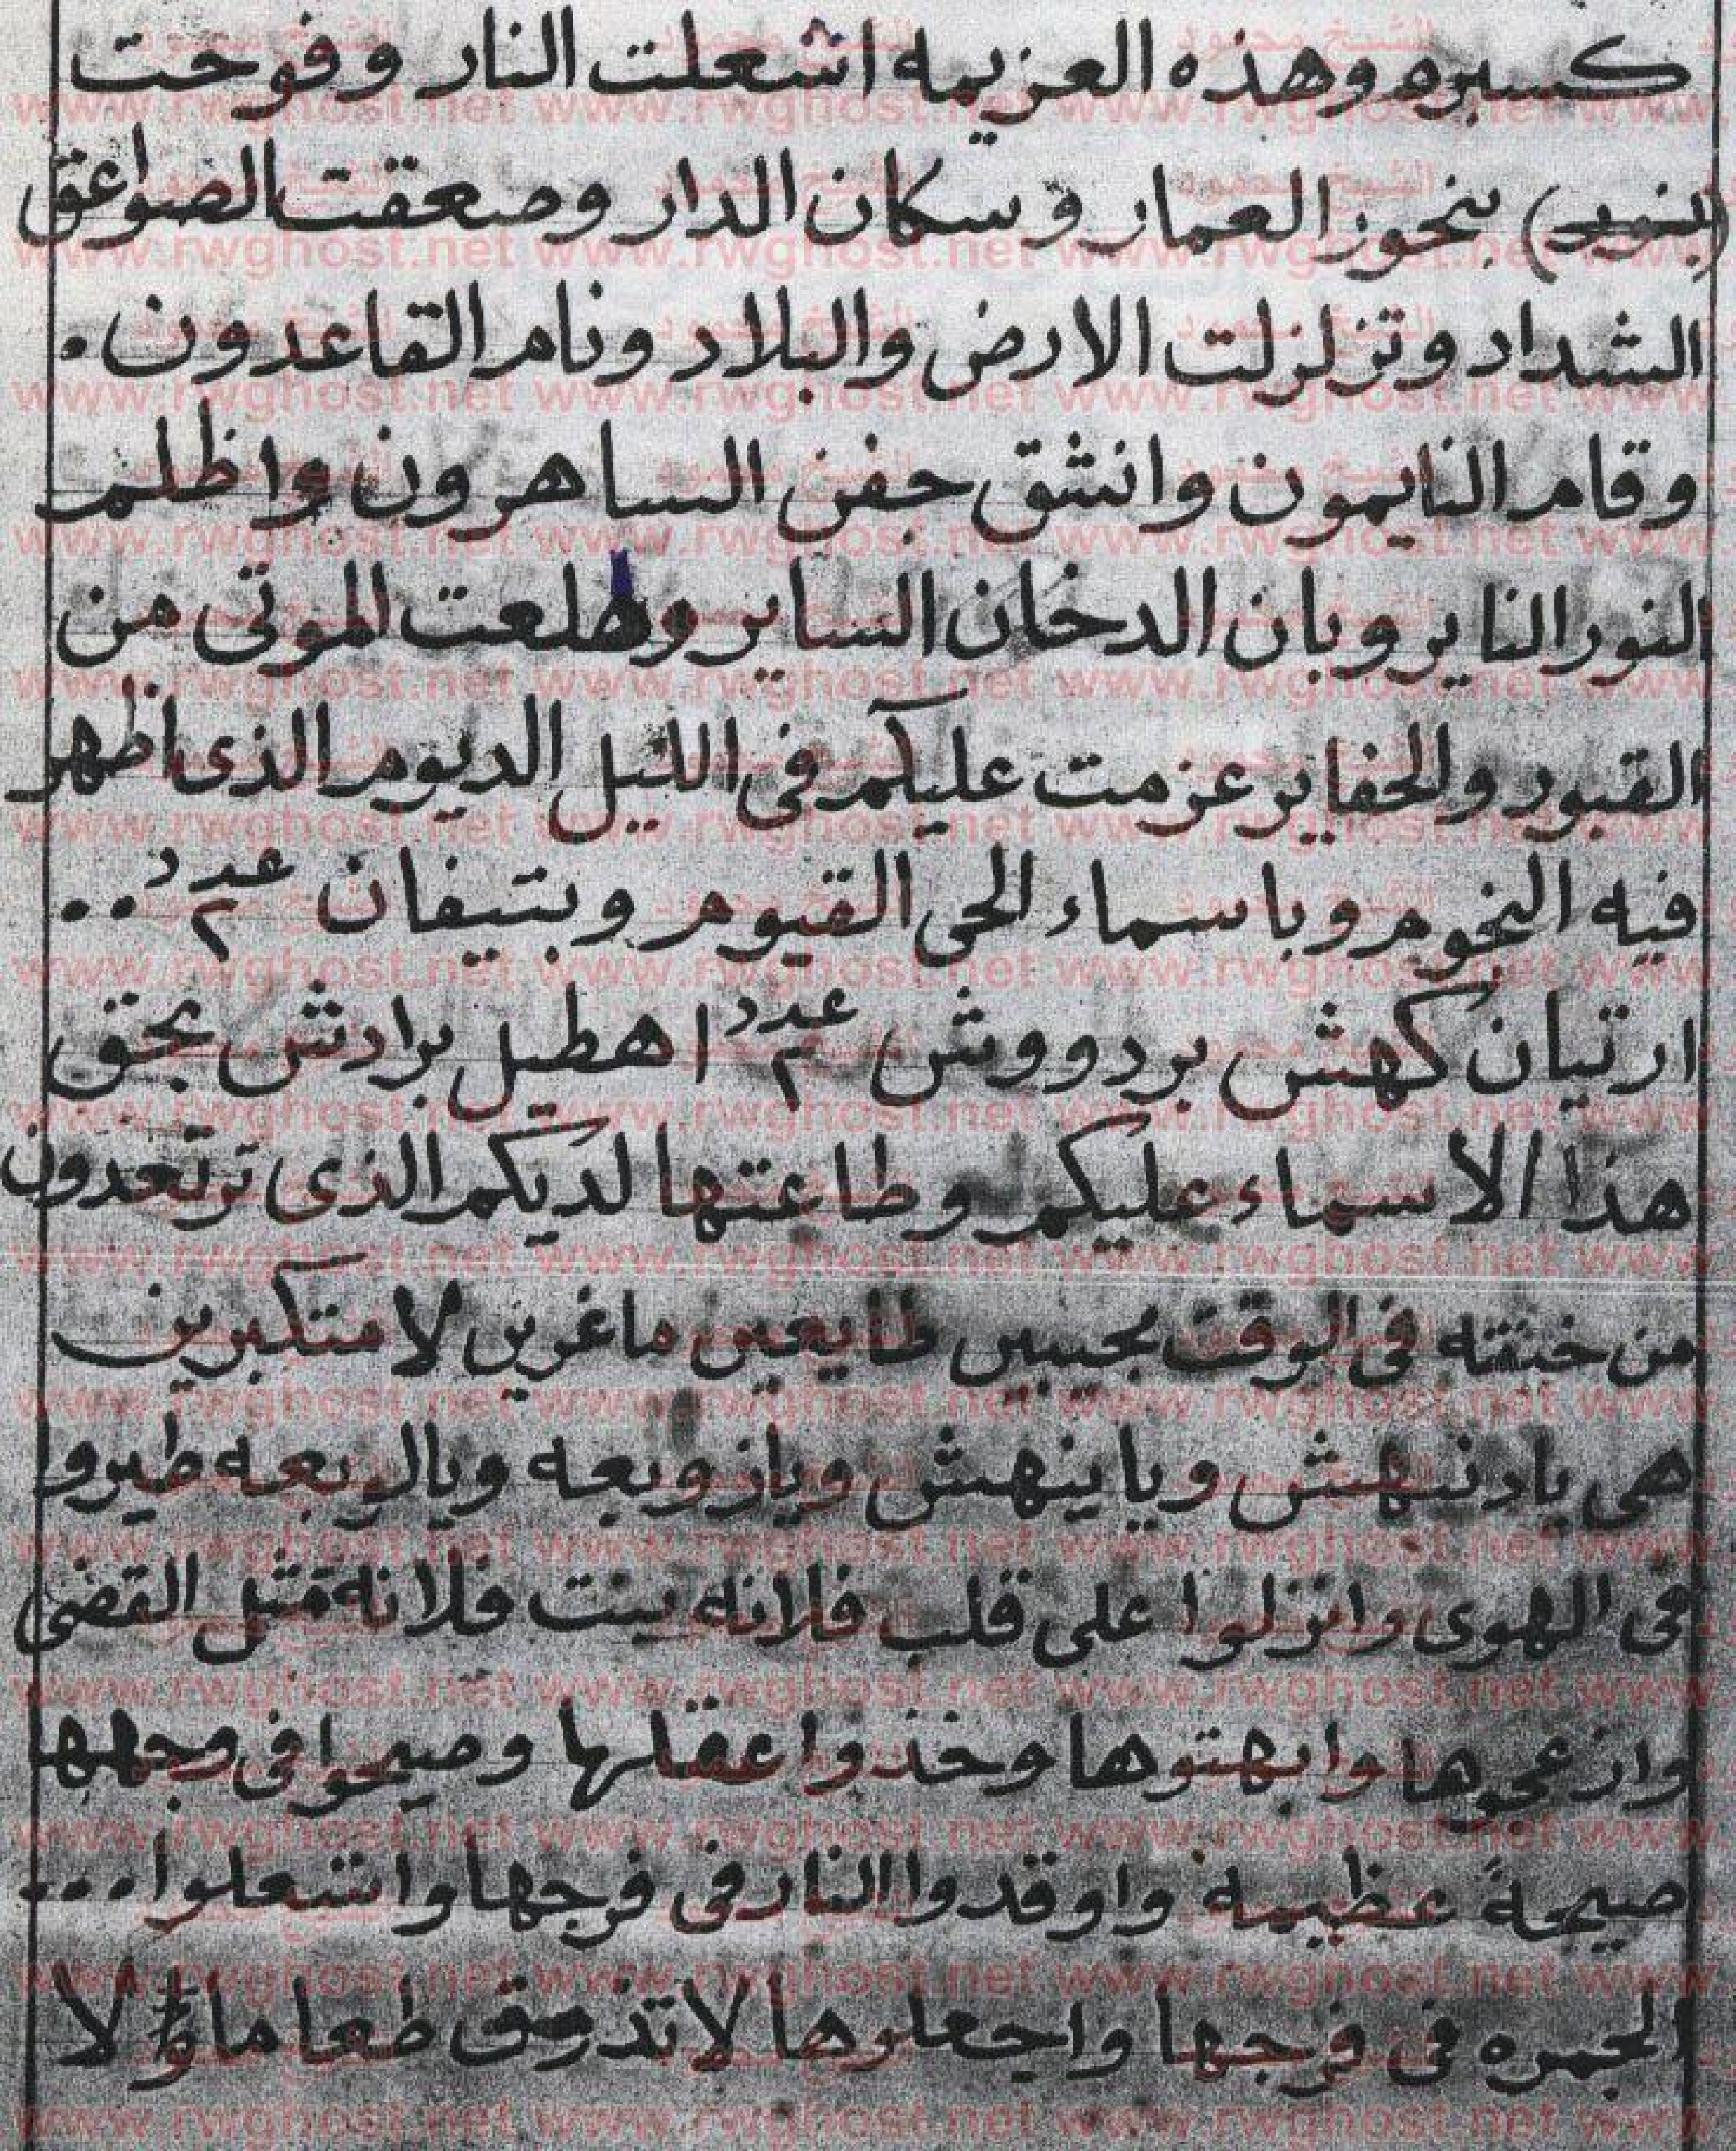 كسبره وهذه العزيمه اشعلت النار وفوحت
بنحور العمار وسكان الدار وصعقت الصواعق
الشداد وتزلزلت الارض والبلاد ونام القاعدون.
وقام النايمون وانشق جفن الساهرون واظلم
النور الناير وبان الدخان الساير وطلعت الموتى من
القبور والحفاير عزمت عليكم فى الليل الديوم الذى اظهر
فيه النجوم وباسماء الحى القيوم وبتيفان عدد ٢ ..
ارتيان كهش بردووش عدد ٢ اهطيل برادش بحق
هذا الاسماء عليكم وطاعتها لديكم الذى ترتعدون
من فى الوقت مجيبين طايعين ماغرين لا متكبرين
هى يادنهش ويا ينهش ويازوبعه ويالربعه طيروا
فى الهوى وانزلوا على قلب فلانه بنت فلانه مثل القضى
وازعجوها وابهتوها وخذوا عقلها وصيحوا فى وجهها
صيحةً عظيمة واوقدوا النار فى فرجها واشعلوا...
الجمره فى فرجها واجعلوها لا تذوق طعاما ولا
www.rwghost.net
الشيخ محمود